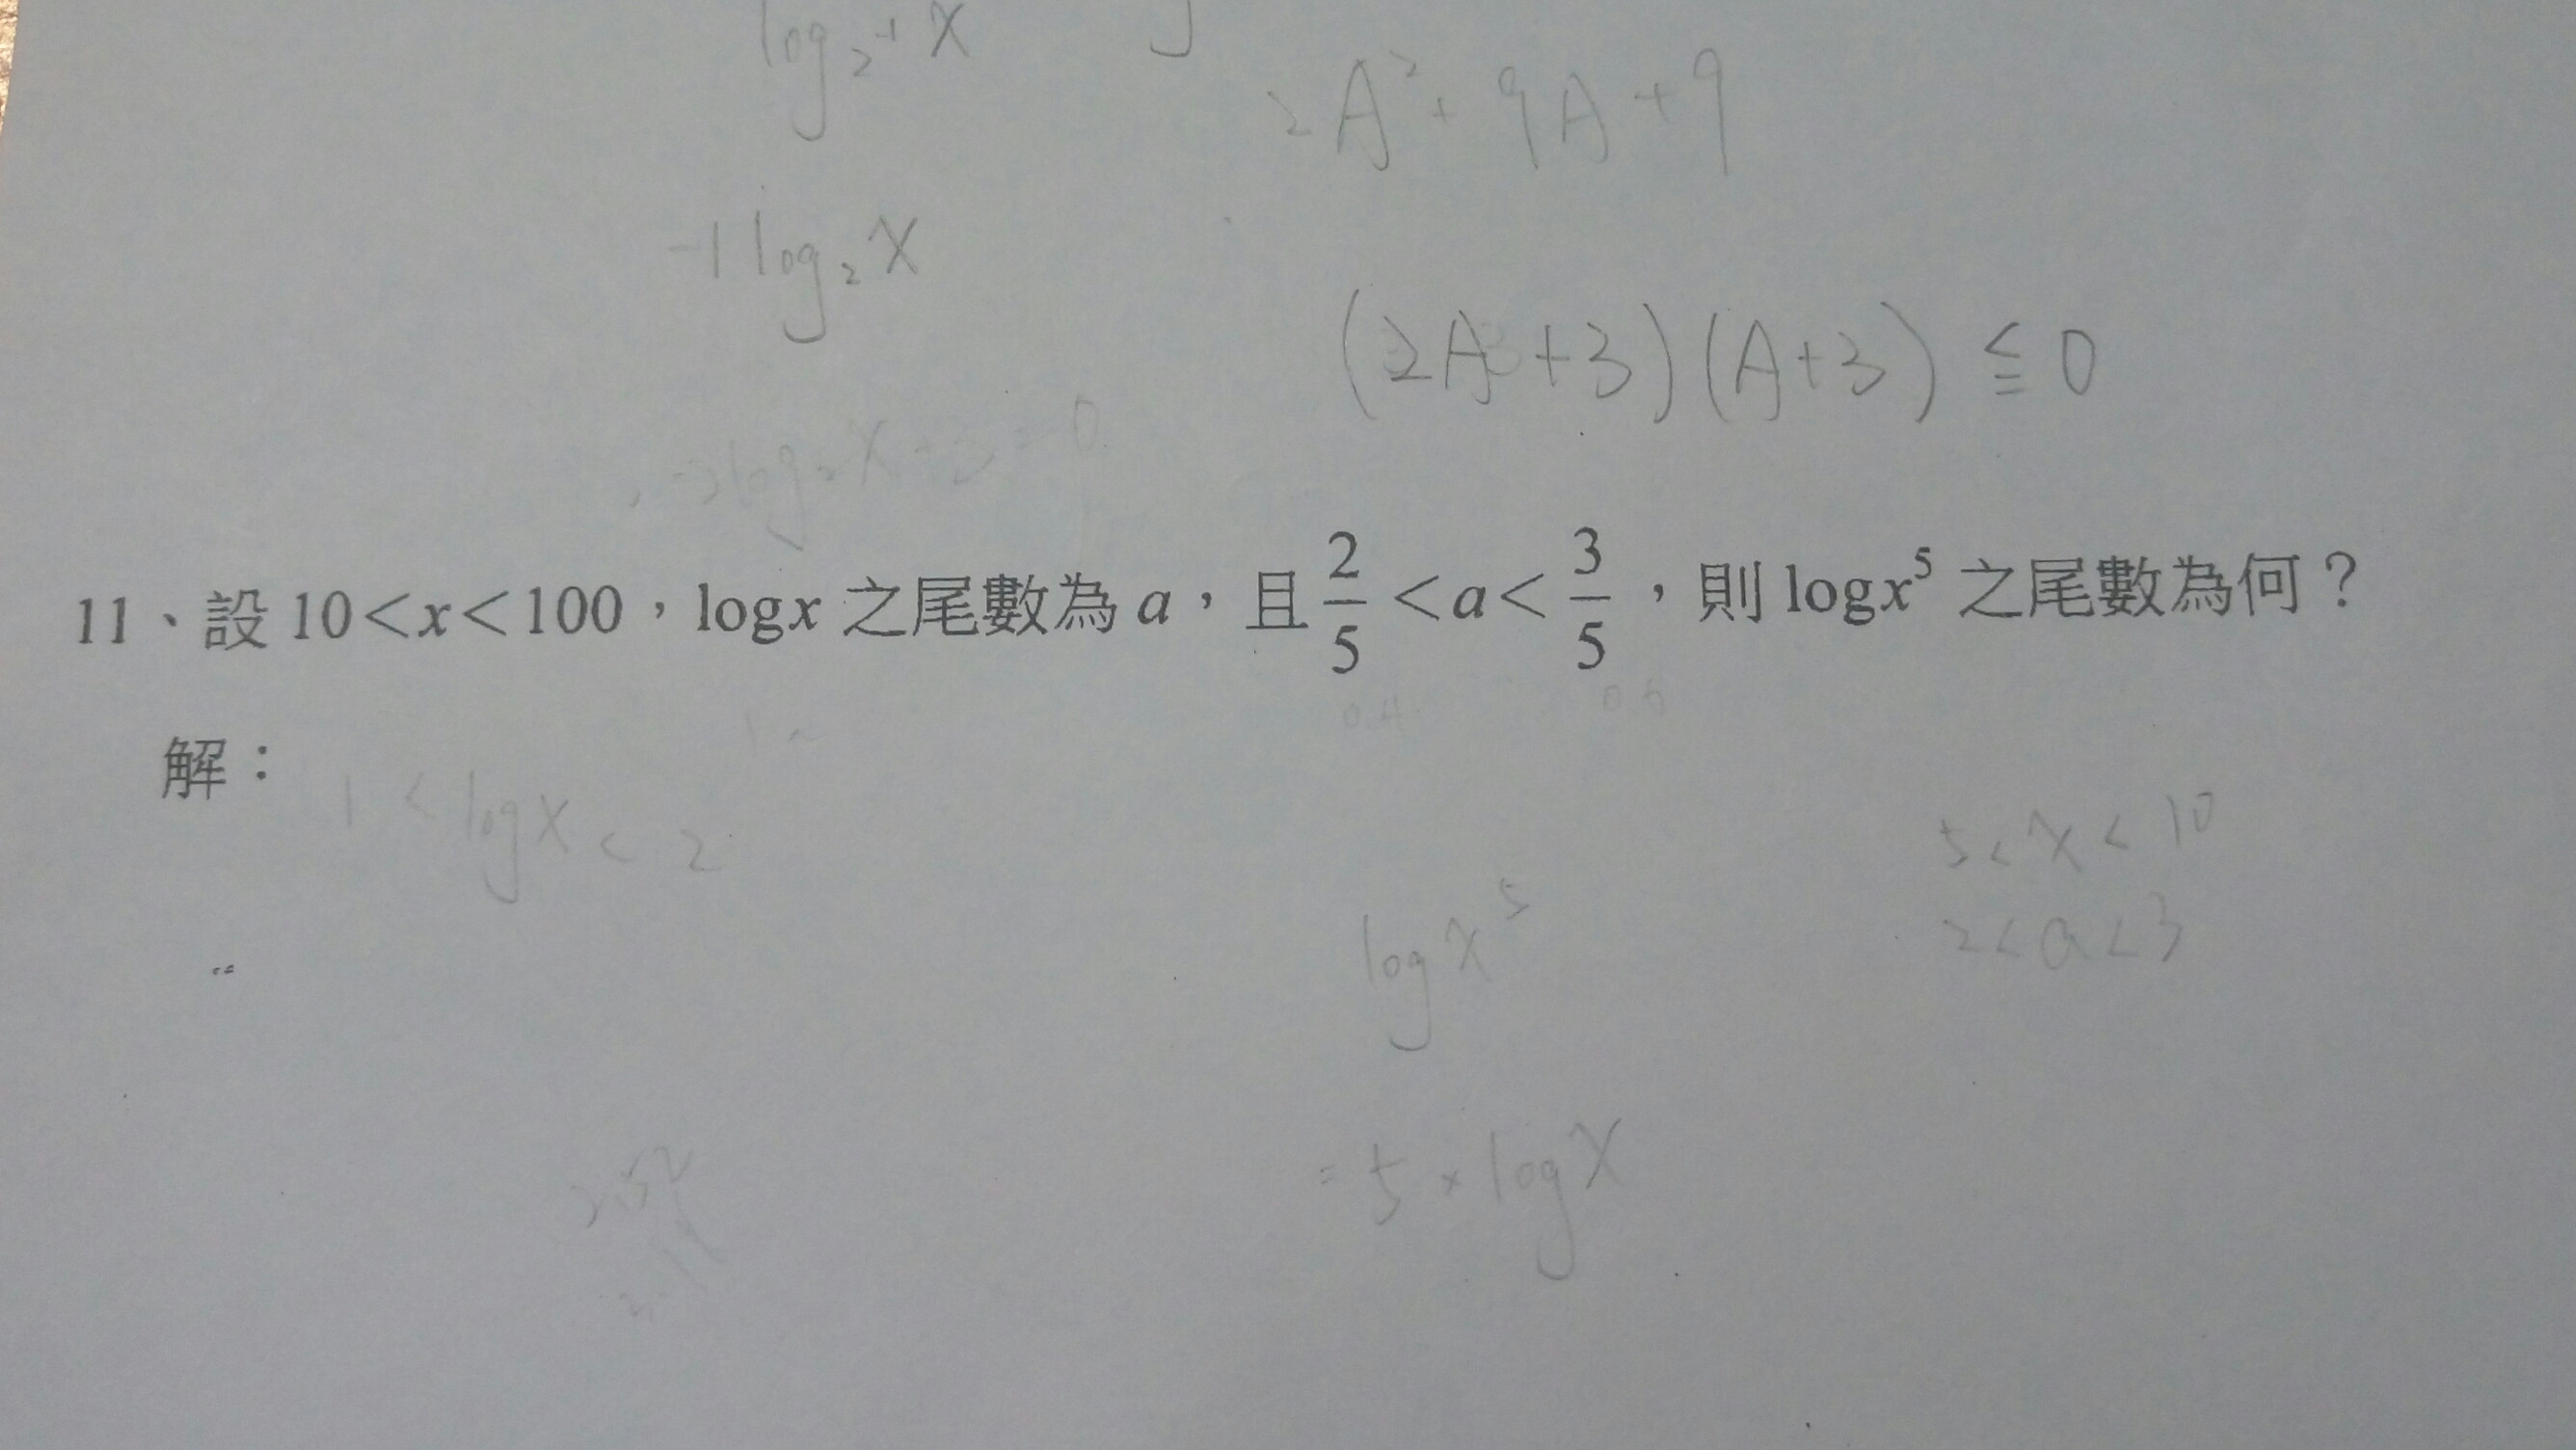 log₂₋₁ x
2A²+9A+9
-1 log₂ x
(2A+3)(A+3) ≦ 0
11、設 10<x<100，logx 之尾數為 a，且 2/5 <a< 3/5，則 logx⁵ 之尾數為何？
0.4
解：
1 < log x < 2
5 < x < 10
log x⁵
2 < a < 3
= 5 × log x